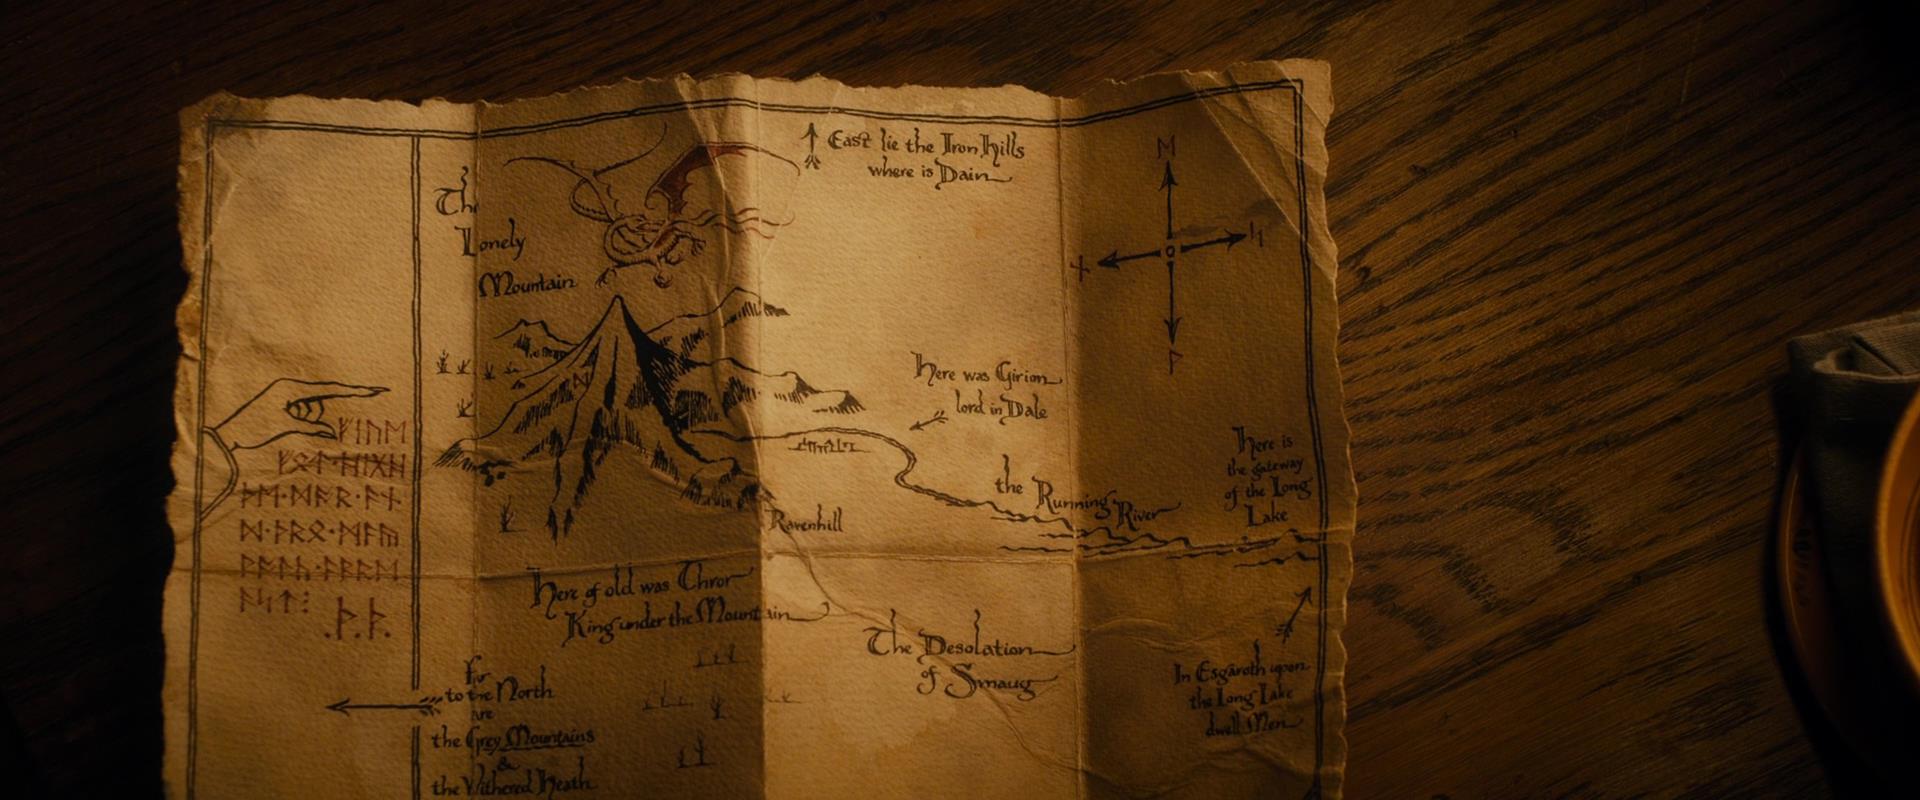 East lie the Iron Hills
where is Dain
The
Lonely
Mountain
ᛗ
ᛋ
ᚾ
ᚹ
ᛞ
Here was Girion
lord in Dale
the Running River
Here is
the gateway
of the Long
Lake
Ravenhill
ᚠᛁᚢᛖ
ᚠᛟᛏ·ᚻᛁᚷᚻ
ᚦᛖ·ᛞᚩᚱ·ᚪᚾ
ᛞ·ᚦᚱᛟ·ᛗᚪᚣ
ᚹᚪᛚᚳ·ᚪᛒᚱᛖ
ᚪᛋᛏ:
.ᚦ.ᚦ.
Here of old was Thror
King under the Mountain
The Desolation
of Smaug
In Esgaroth upon
the Long Lake
dwell Men
Far
to the North
are
the Grey Mountains
&
the Withered Heath